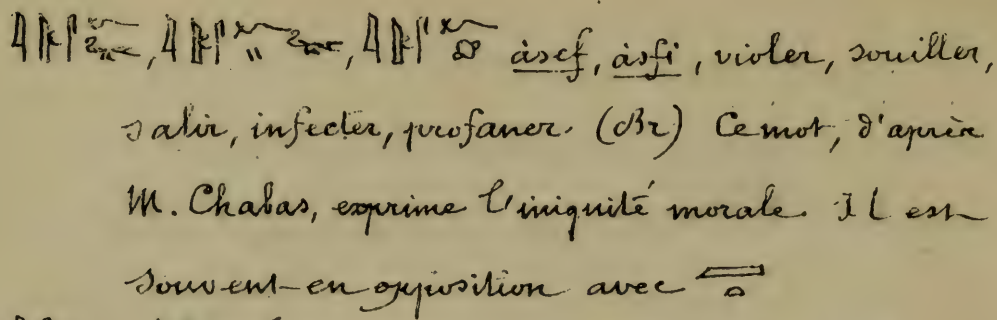 àsef, àsfi, violer, souiller,
salir, infecter, profaner. (Br) Ce mot, d'après
M. Chabas, exprime l'iniquité morale. Il est
souvent en opposition avec